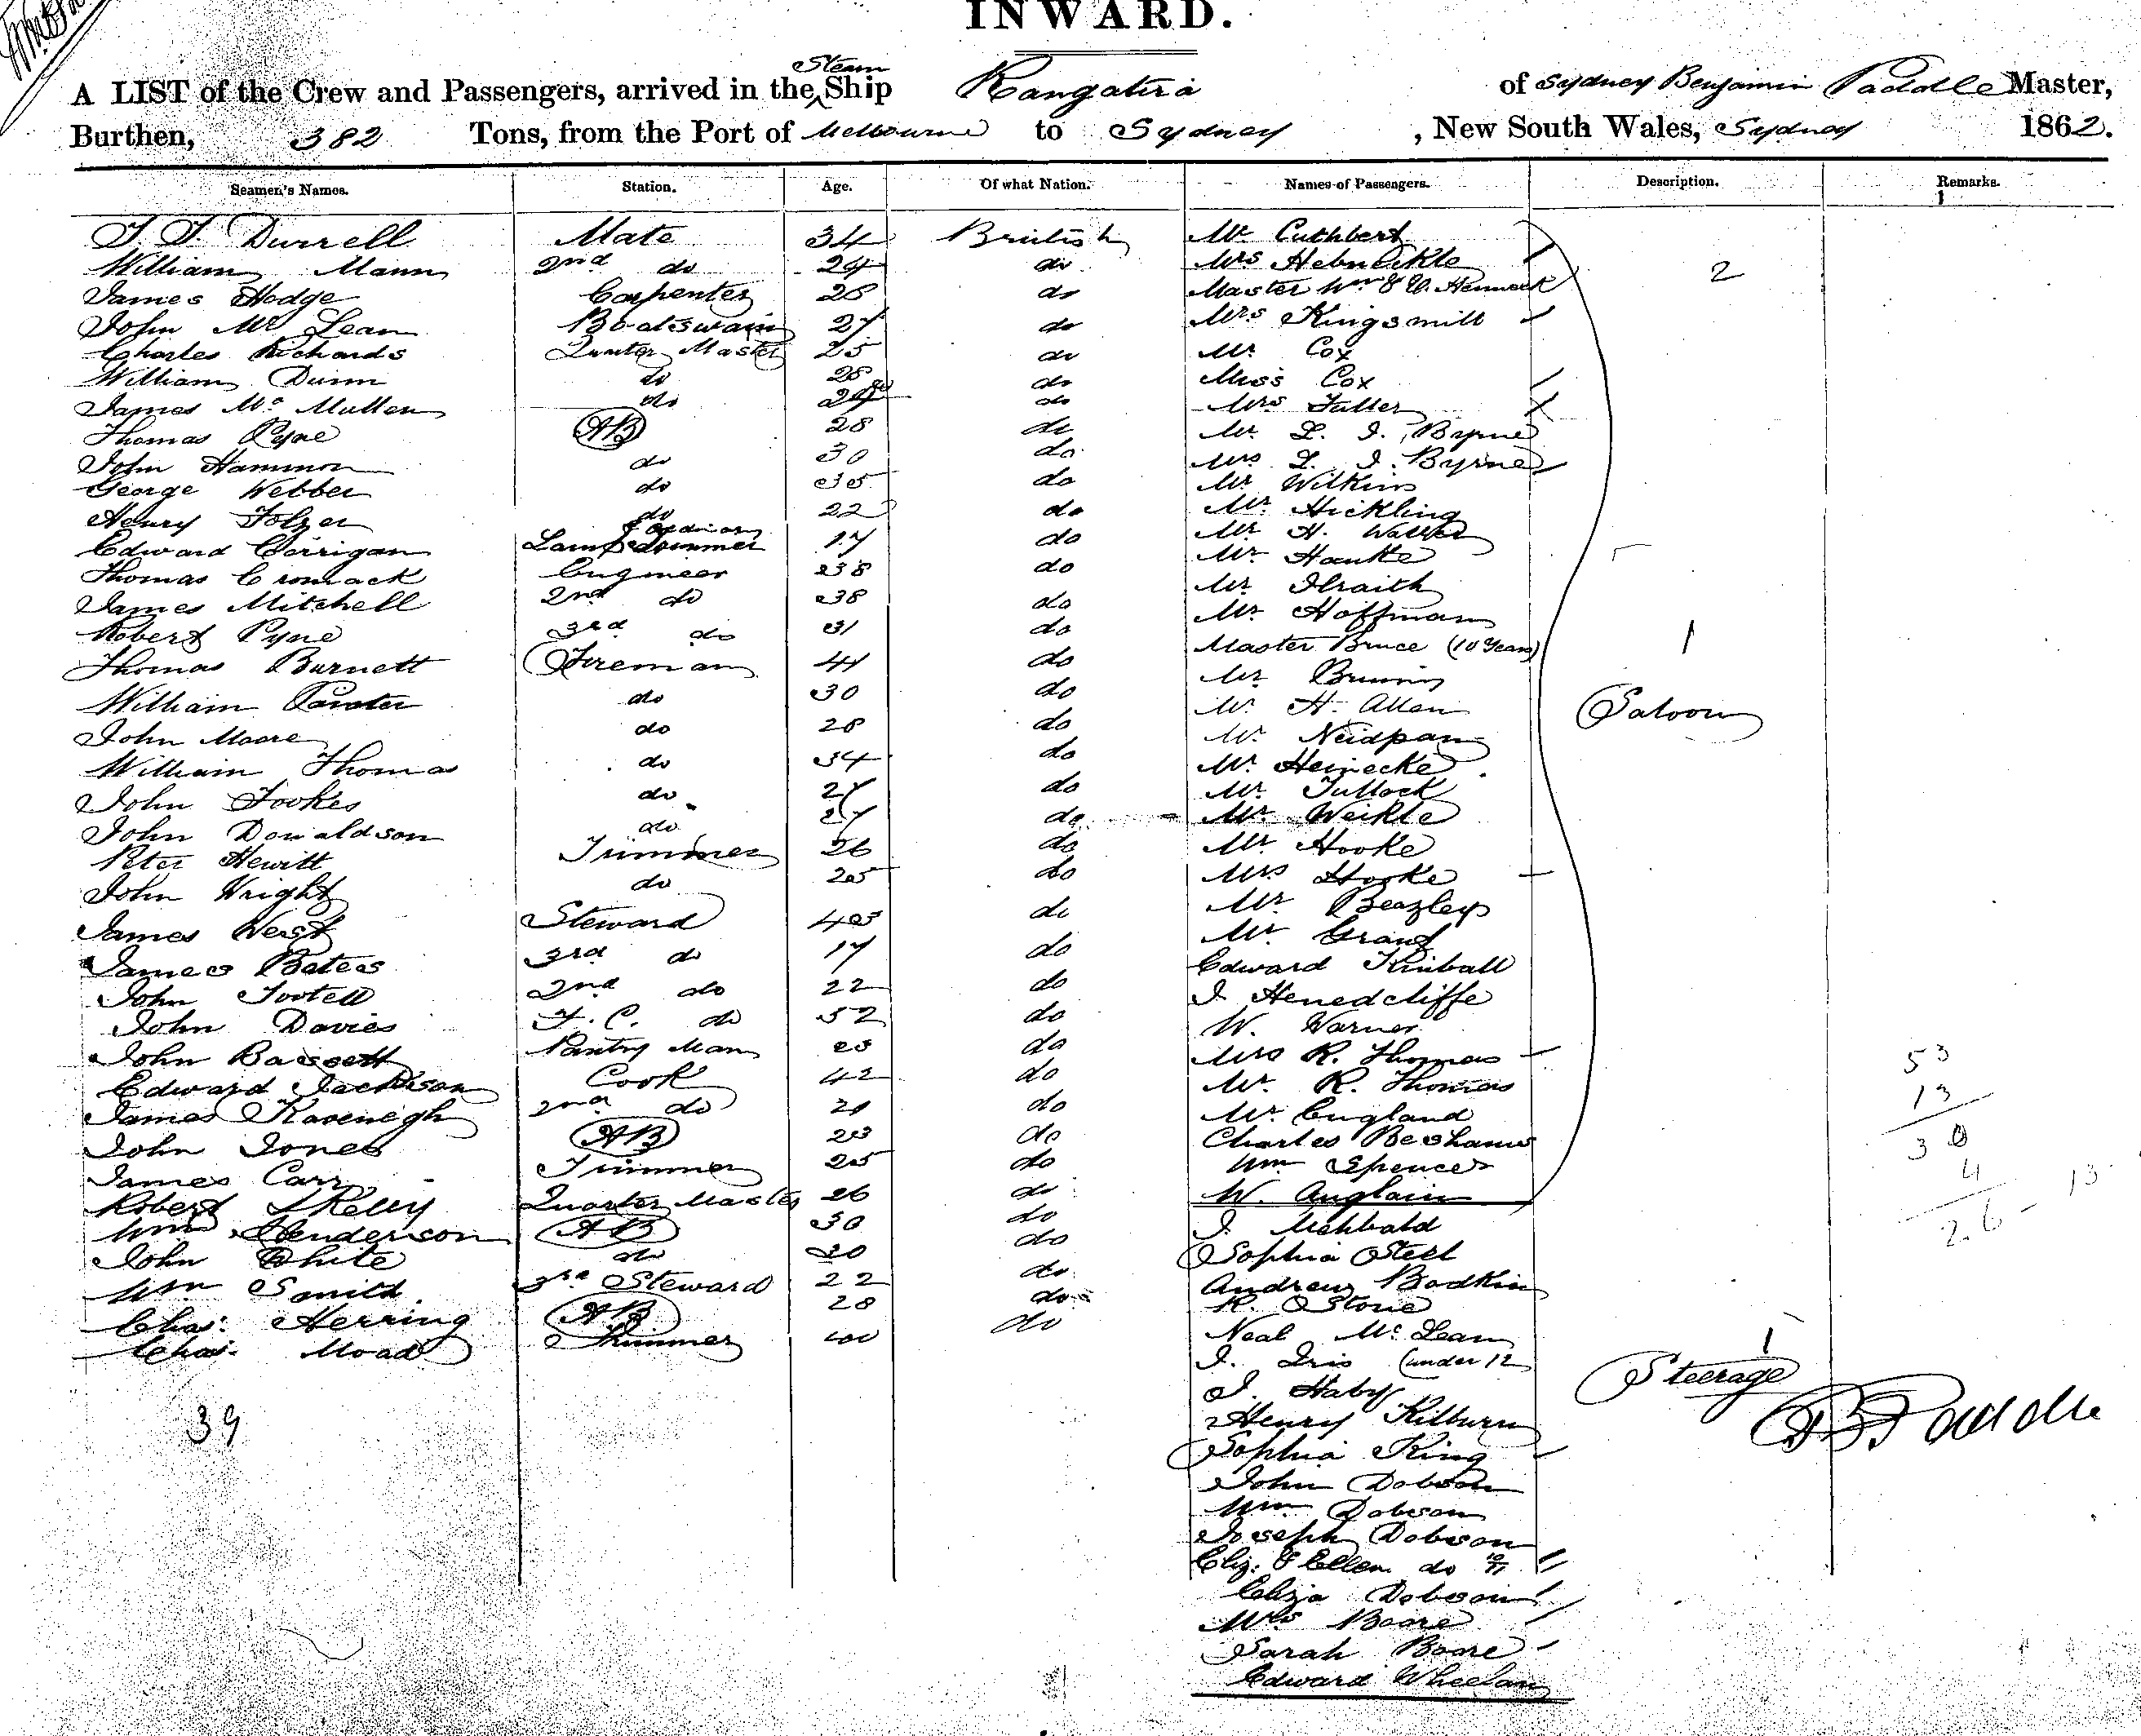 INWARD.
A LIST of the Crew and Passengers, arrived in the Steam Ship Rangatira of Sydney Benjamin Paddle Master,
Burthen, 382 Tons, from the Port of Melbourne to Sydney, New South Wales, Sydney 1862.
Seamen's Names. Station. Age. Of what Nation. Names of Passengers. Description. Remarks.
Durrell Mate 34 British Mr Cuthbert
William Mann 2nd do 24 do Mrs
James Hodge Carpenter 28 do Master Wm & 2
John Mc Lean Boatswain 27 do Mrs Kingsmill
Charles Richards Quarter Master 25 do Mr Cox
William Dunn do 28 do Miss Cox
James Mc Mullen do do Mrs Fuller
Thomas Pyne AB 28 do Mr L. I. Byrne
John Hammon do 30 do Mrs L. I. Byrne
George Webber do 35 do Mr Wilkins
Henry Folzer do 22 do Mr Hickling
Edward Corrigan Lamp Trimmer & Ordinary 17 do Mr H.
Thomas Cromack Engineer 38 do Mr
James Mitchell 2nd do 38 do Mr Ilraith
Robert Pyne 3rd do 31 do Mr Hoffmann
Thomas Burnett Fireman 41 do Master Bruce (10 Years) 1
William do 30 do Mr
John Moore do 28 do Mr H. Allen Saloon
William Thomas do 34 do Mr Neidpan
John Fookes do 27 do Mr Heinecke
John Donaldson do 27 do Mr Tullock
Peter Hewitt Trimmer 26 do Mr Weikle
John Wright do 25 do Mr Hooke
James West Steward 40 do Mrs Hooke
James Bates 3rd do 17 do Mr Beazley
John Tootell 2nd do 22 do Mr Grant
John Davies F. C. do 52 do Edward Kimball
John Bassett Pantry Man 23 do I Henedcliffe
Edward Jackson Cook 42 do W. Warner
James Kavenegh 2nd do 21 do Mrs R. Thomas
John Jones AB 23 do Mr R. Thomas
James Carr Trimmer 25 do Mr England
Robert Skelly Quarter Master 26 do Charles
Wm Henderson AB 30 do Wm Spencer
John White do 30 do W. Anglain
Wm Smith 3rd Steward 22 do
Chas. Herring AB 28 do Sophia Steel
Chas. Moad Trimmer 40 do Andrew Bodkin
R. Stone
Neal Mc Lean
I. Iris (under 12 1
I. Haby Steerage
Henry Kilburn
Sophia King
John Dobson
Wm Dobson
Joseph Dobson
Eliz. & Ellen do
Eliza Dobson
Mrs Boare
Sarah Boare
Edward Wheelan
39
53
13
30
4
26
13
Paddle